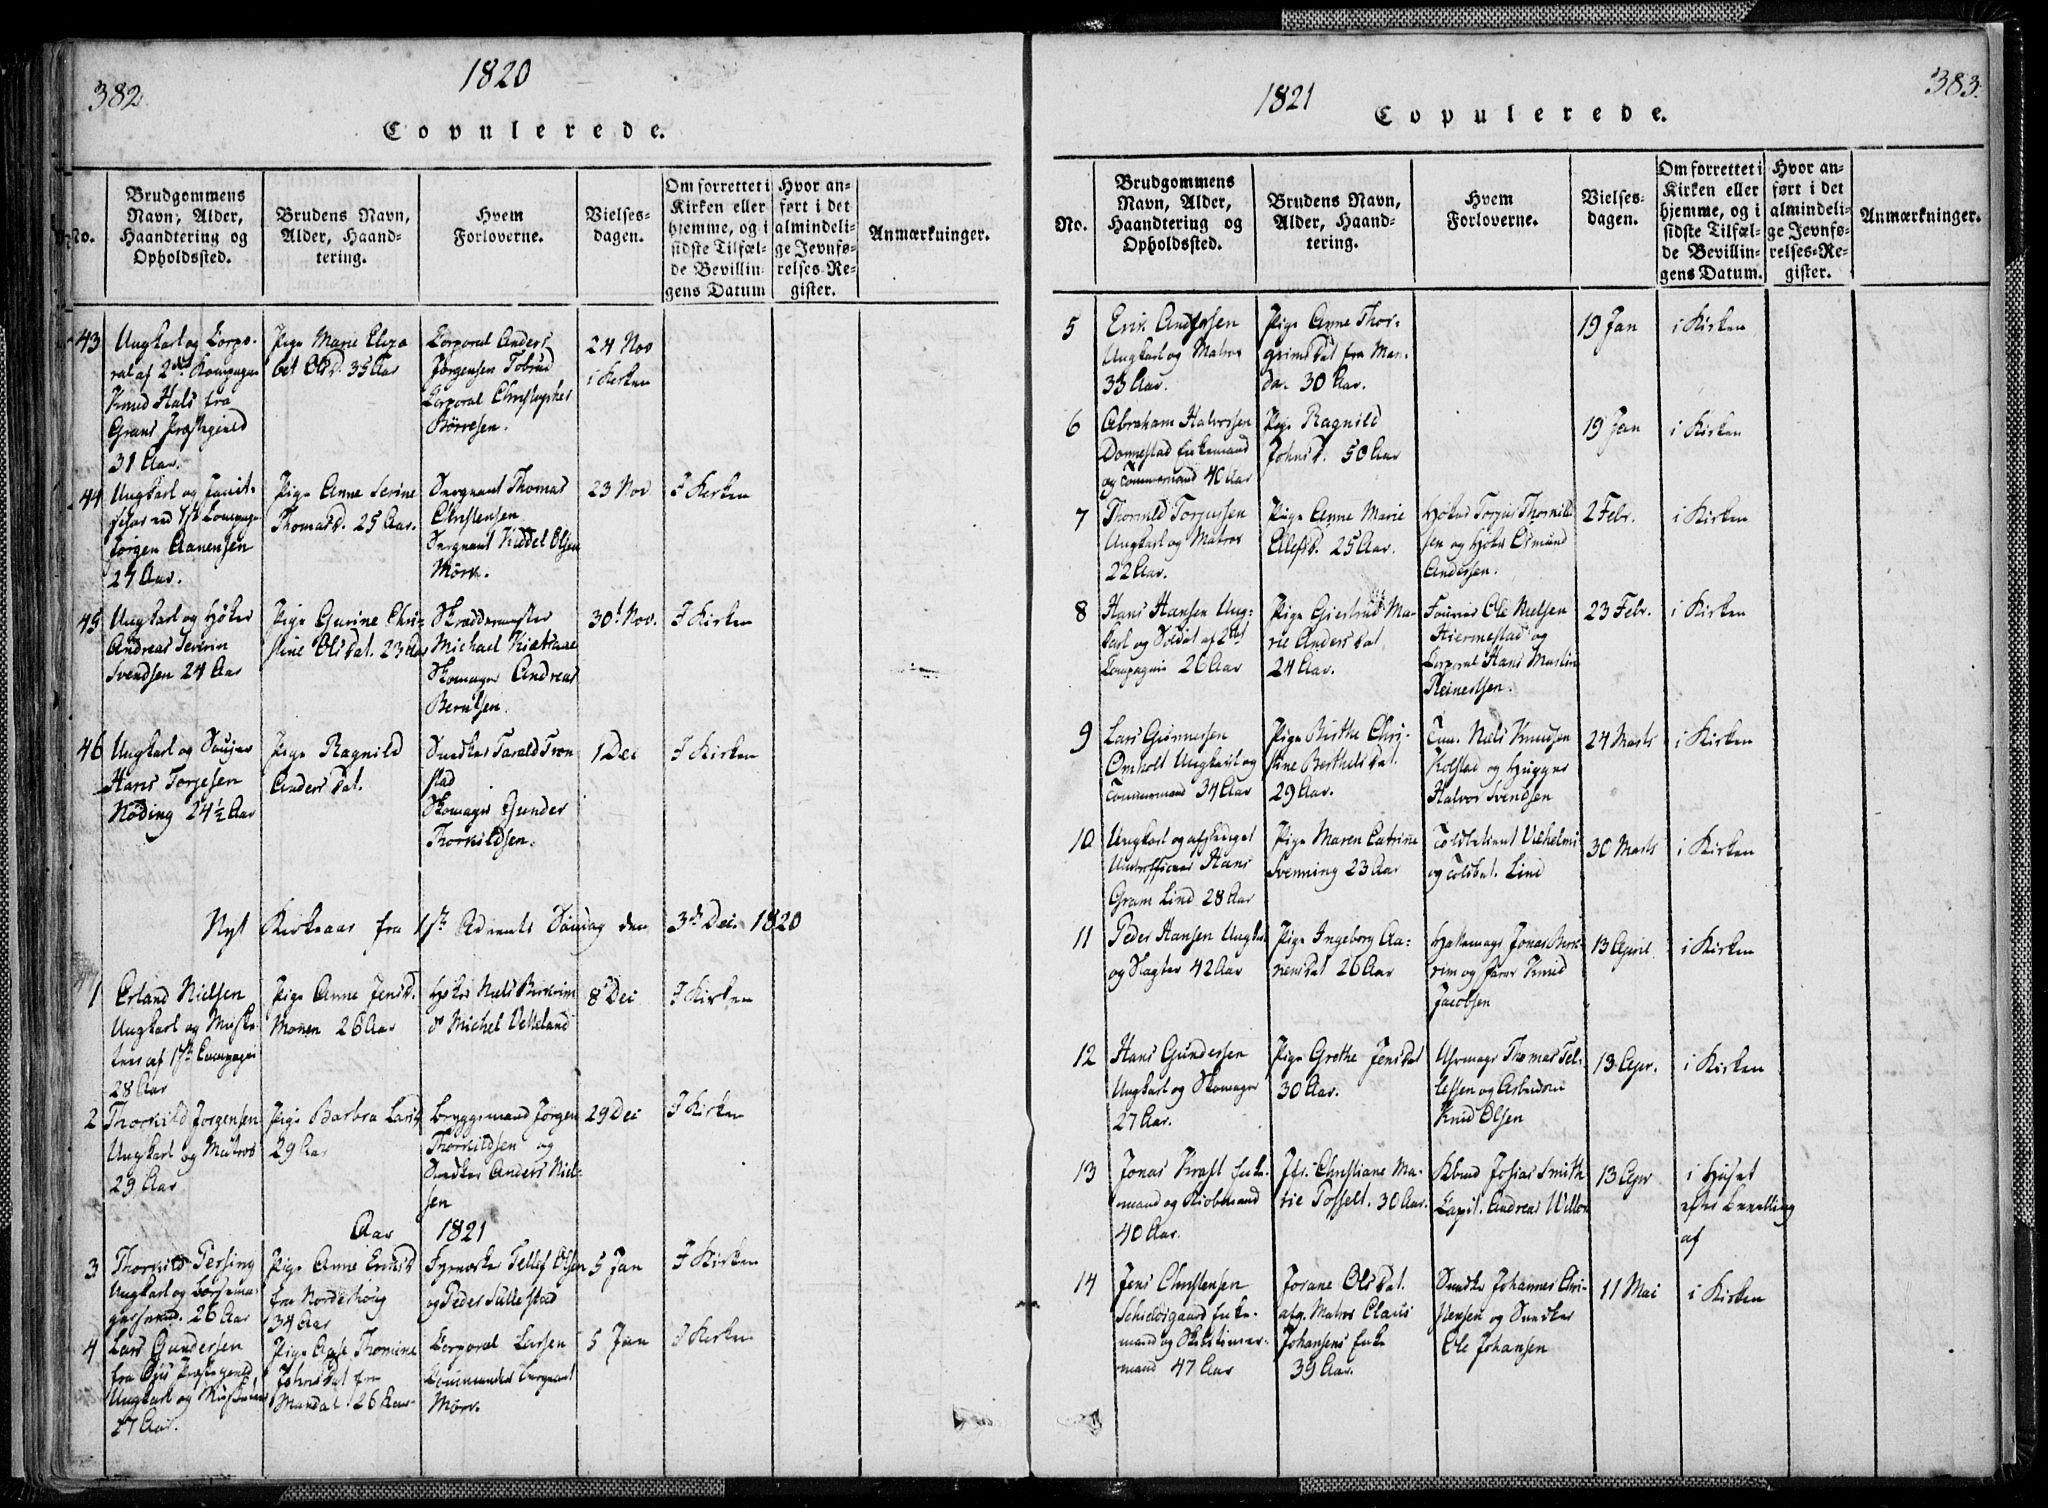 382
1820
Copulerede.
No.
Brudgommens
Navn, Alder,
Haandtering og
Opholdssted.
Brudens Navn,
Alder, Haand-
tering.
Hvem
Forloverne.
Vielses-
dagen.
Om forrettet i
Kirken eller
hjemme, og i
sidste Tilfæl-
de Bevillin-
gens Datum
Hvor an-
ført i det
almindeli-
ge Jevnfø-
relses-Re-
gister.
Anmærkninger.
43
Ungkarl og Corpo-
ral af 2den Compagnie
Knud Hals fra
Grans Præstegield
31 Aar.
Pige Marie Eliza
bet Olsd. 35 Aar
Corporal Anders
Jørgensen Tobrud
Corporal Christopher
Børresen.
24 Nov
i Kirken
44
Ungkarl og
Jørgen Aanensen
27 Aar.
Pige Anne Serine
Thomasd. 25 Aar.
Sergeant Thomas
Christensen
Sergeant Kiddel Olsen
Mørk.
23 Nov
I Kirken
45
Ungkarl og Høker
Andreas Severin
Svendsen 24 Aar
Pige Gurine Chri-
stine Olsdat. 23 Aar
Skræddermester
Michael
Skomager Andreas
Berntsen.
30t Nov.
I Kirken
46
Ungkarl og
Hans Torjesen
Nöding 24½ Aar
Pige Ragnild
Anders Dat.
Snedker Tarald Tron
stad
Skomager Gunder
Thorkildsen.
1 Dec
I Kirken
Nyt Kirkeaar fra 1ste Advents Søndag den 3de Dec. 1820
1
Erland Nielsen
Ungkarl og Muske-
teer af 1ste Compagnie
28 Aar
Pige Anne Jensd.
Monen 26 Aar
Høker Niels Birkrim
& Michel Vetteland
8 Dec
I Kirken
2
Thorkild Jørgensen
Ungkarl og Matros
29 Aar
Pige Barbra Larsd
29 Aar
Bryggemand Jørgen
Thorkildsen og
Snedker Anders Niel-
sen
29 Dec
I Kirken
Aar 1821
3
Thorkild Tersing
Ungkarl og
26 Aar
Pige Anne Ericsd
fra Norderhoug
34 Aar
Tellef Olsen
og Peder Tullestad
5 Jan
I Kirken
4
Lars Gundersen
fra Præstegield
Ungkarl og Musketeer
27 Aar.
Pige Aase Thomine
Johns Dat fra
Mandal 26 Aar.
Corporal Larsen
Commandeer Sergeant
Mørk.
5 Jan
I Kirken
383.
1821
Copulerede.
No.
Brudgommens
Navn, Alder,
Haandtering og
Opholdssted.
Brudens Navn,
Alder, Haand-
tering.
Hvem
Forloverne.
Vielses-
dagen.
Om forrettet i
Kirken eller
hjemme, og i
sidste Tilfæl-
de Bevillin-
gens Datum.
Hvor an-
ført i det
almindeli-
ge Jevnfø-
relses-Re-
gister.
Anmærkninger.
5
Eric Andersen
Ungkarl og Matros
33 Aar.
Pige Anne Thor-
grimsdat fra Man-
dal 30 Aar.
19 Jan
i Kirken
6
Abraham Halvorsen
Donnestad Enkemand
og Tømmermand 40 Aar
Pige Ragnild
Johnsd. 50 Aar
19 Jan
i Kirken
7
Thorkild Torjussen
Ungkarl og Matros
22 Aar.
Pige Anne Marie
Ellefsd. 25 Aar.
Høker Torjus Thorkild
sen og Høker Osmund
Andersen.
2 Febr.
i Kirken
8
Hans Hansen Ung-
karl og Soldat af 2det
Compagnie 26 Aar
Pige Giertrud Ma-
rie Anders Dat
24 Aar.
Fourer Ole Nielsen
Hiermestad og
Corporal Hans Martin
Reinertsen.
23 Febr.
i Kirken
9
Lars Giermesen
Omholt Ungkarl og
Tømmermand 34 Aar
Pige Birthe Chri-
stine Berthels Dat.
29 Aar.
Tøm. Niels Knudsen
Kolstad og Hugger
Halvor Svendsen
24 Marts
i Kirken
10
Ungkarl og afskediget
Underofficeer Hans
Gram Lind 28 Aar
Pige Maren Catrine
Svenning 23 Aar
Toldbetient Vilhelmi
og Toldbet. Lind
30 Marts
i Kirken
11
Peder Hansen Ungkarl
og Slagter 42 Aar
Pige Ingeborg Aa-
nensdat 26 Aar
Hattemager Jonas Birk-
rim og Farver Knud
Jacobsen
13 April
i Kirken
12
Hans Gundersen
Ungkarl og Skomager
27 Aar.
Pige Grethe Jensdat
30 Aar.
Uhrmager Thomas Tel-
lefsen og Arbeidsm
Knud Olsen
13 Apr.
i Kirken
13
Jonas Kraft Enke-
mand og Kiøbmand
40 Aar.
Jfr. Christiane Ma-
rie Posselt. 30 Aar.
Kbmd Josias Smith
Capit. Andreas Willor
13 Apr
i Huset
efter bevilling
af
14
Jens Christensen
Schieldsgaard Enke-
mand og Skibstimer-
mand 47 Aar
Jorane Olsdat.
afg. Matros Claus
Johansens Enke
39 Aar.
Snedker Johannes Chri-
stensen og Snedker
Ole Johansen
11 Mai
i Kirken